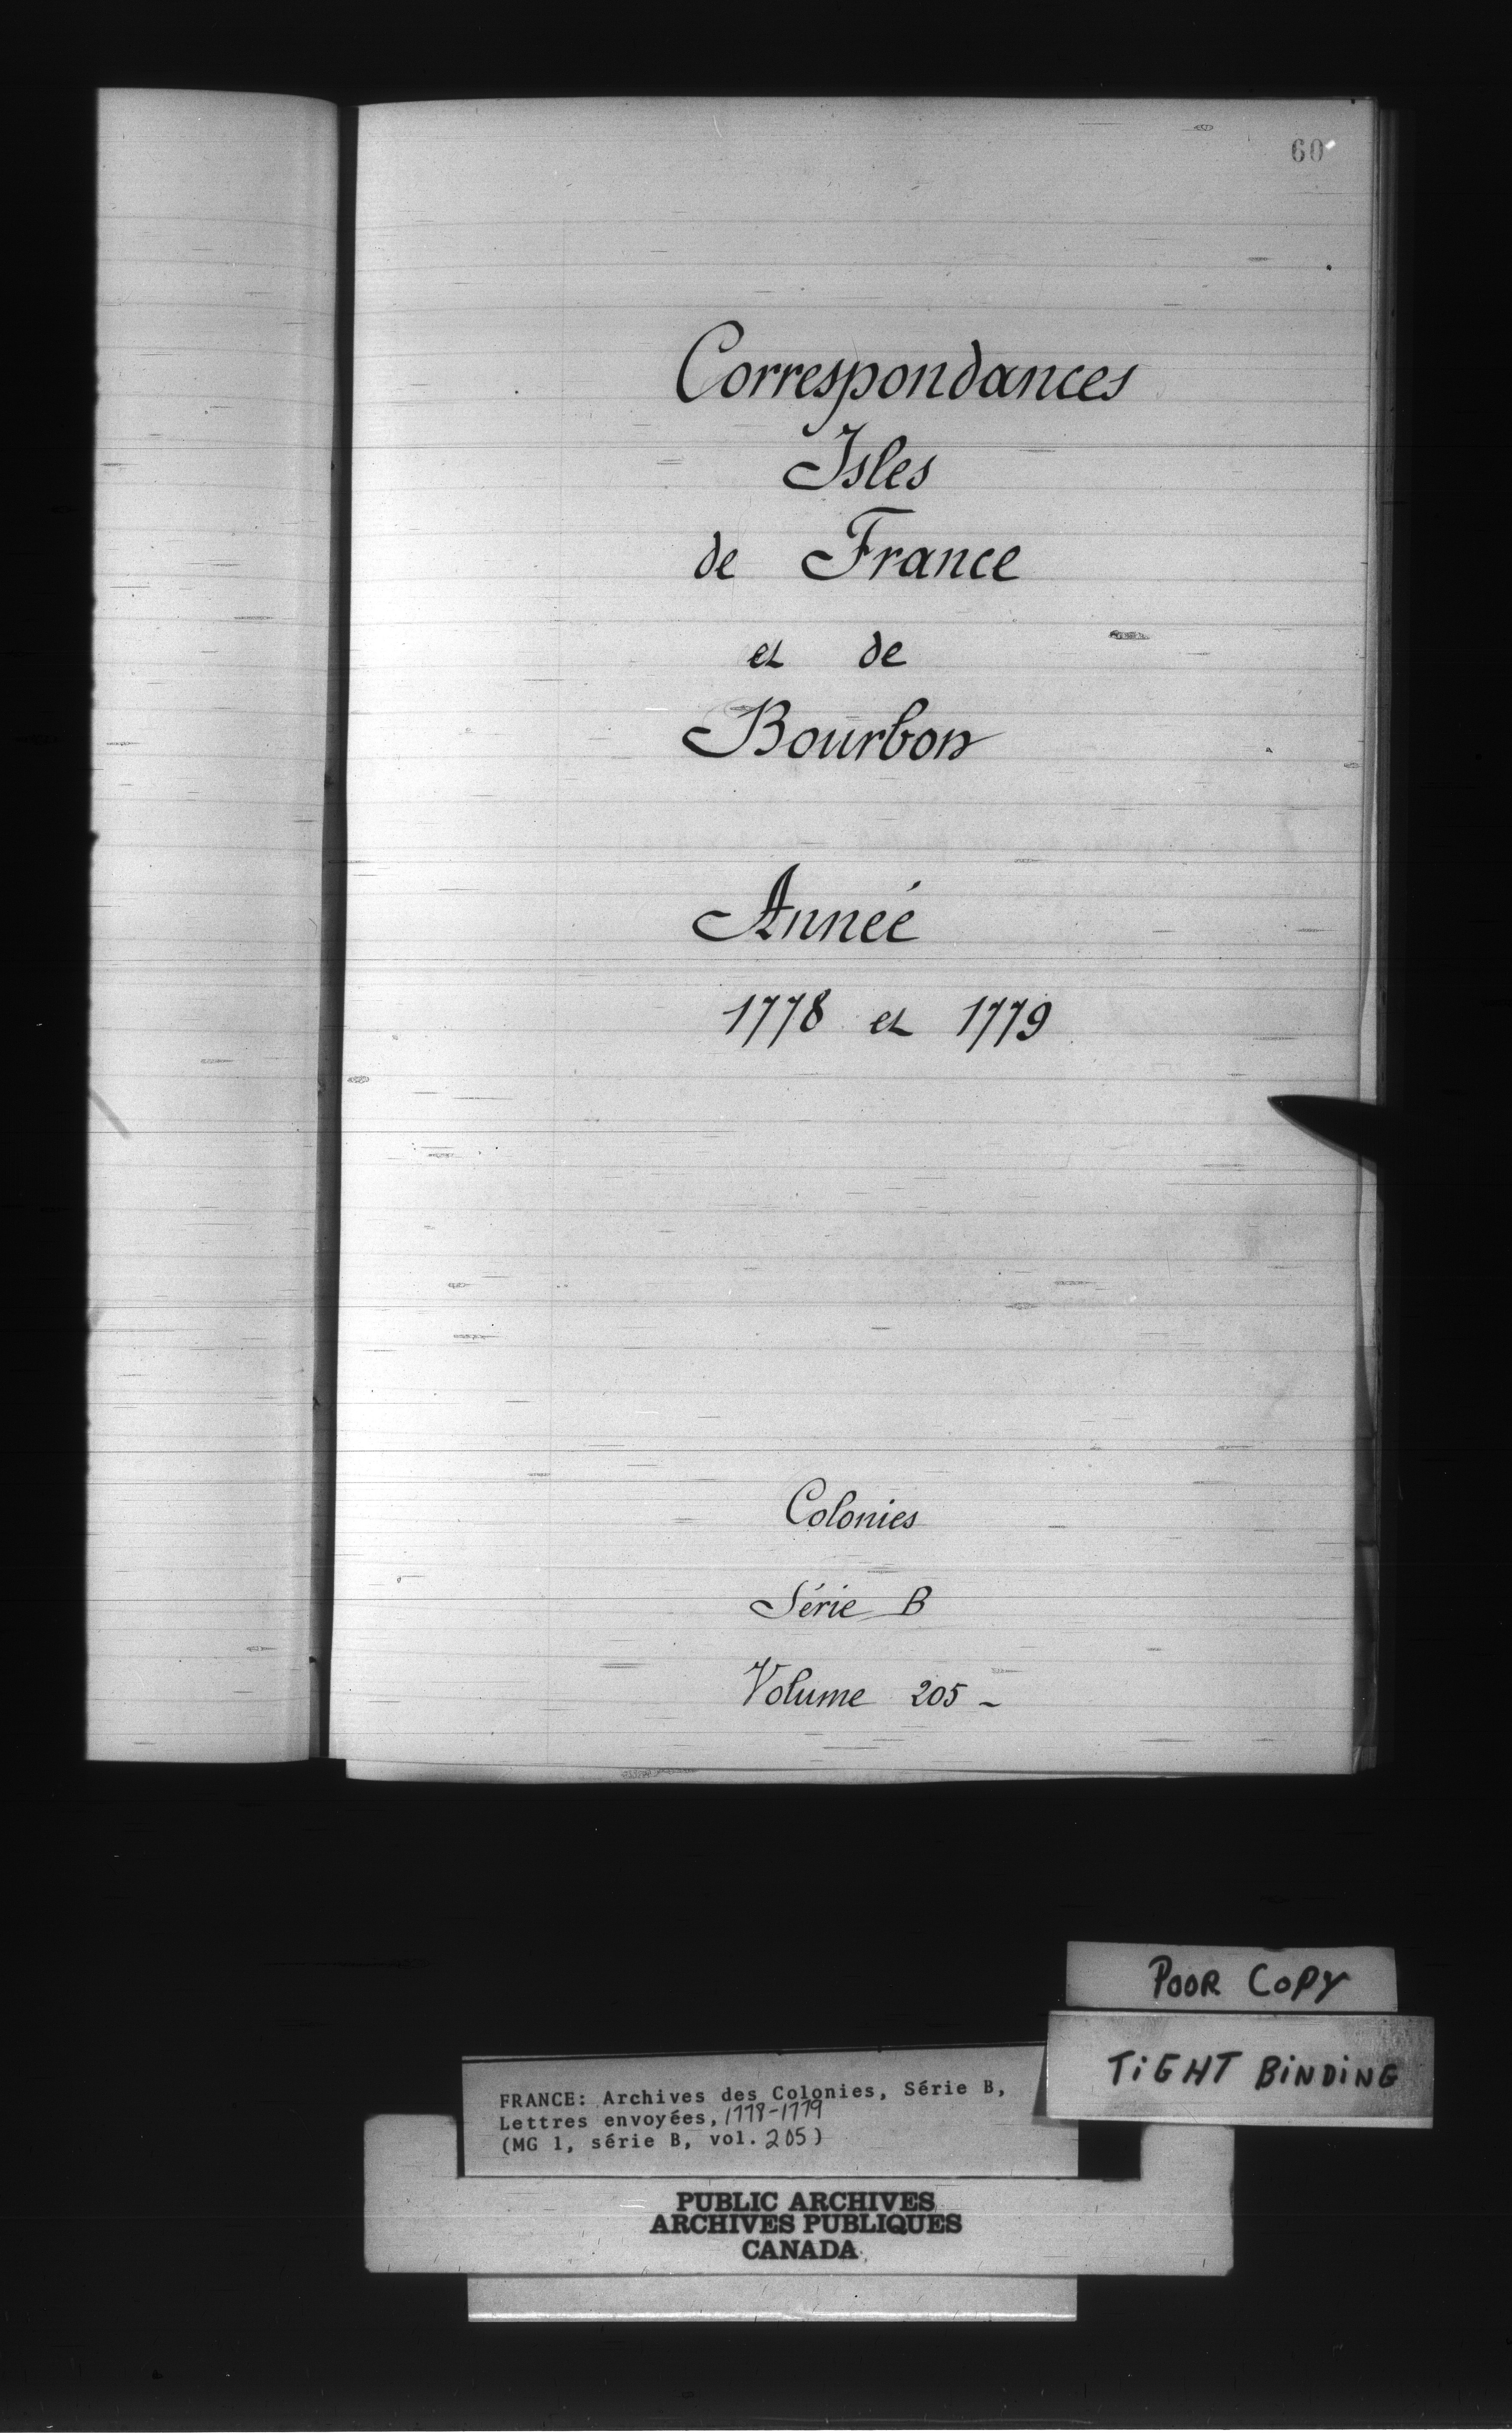 60
Correspondances
Isles
de France
et de
Bourbon
Anneé
1778 et 1779
Colonies
Série B
Volume 205 -
POOR COPY
TIGHT BINDING
FRANCE: Archives des Colonies, Série B,
Lettres envoyées, 1778-1779
(MG 1, série B, vol. 205)
PUBLIC ARCHIVES
ARCHIVES PUBLIQUES
CANADA